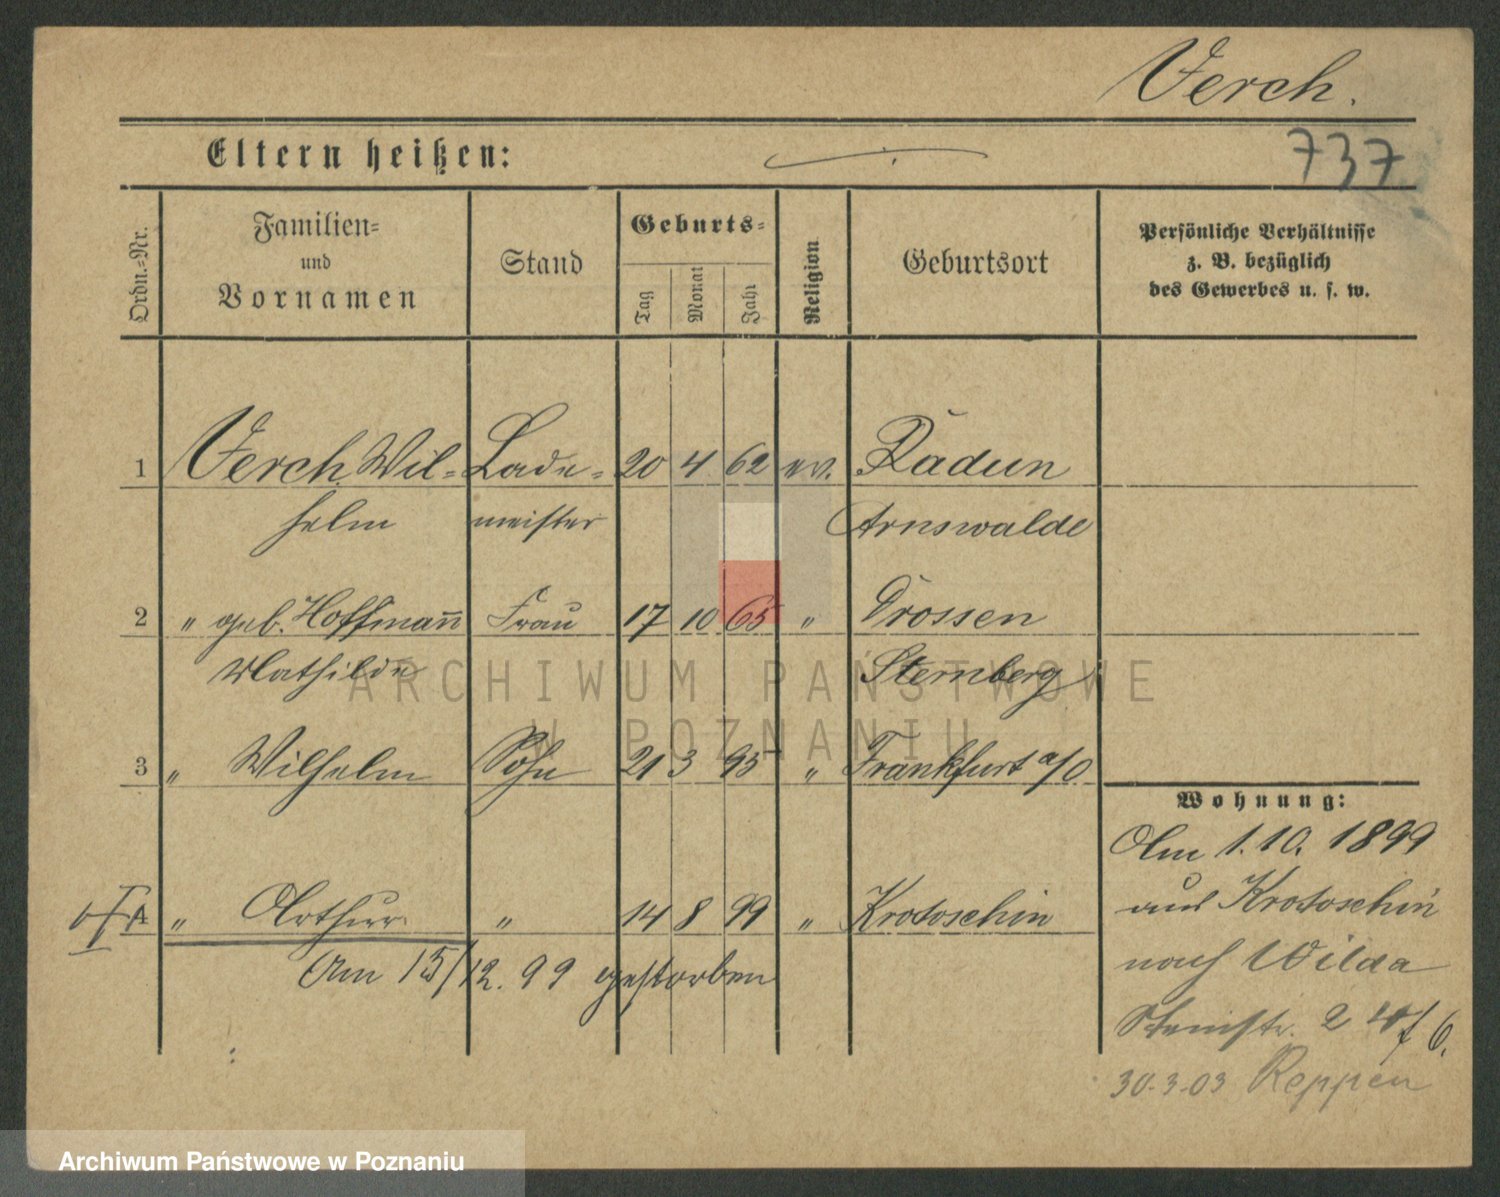 Verch.
Eltern heißen:
737
Ordn.-Nr.
Familien-
und
Vornamen
Stand
Geburts-
Tag
Monat
Jahr
Religion
Geburtsort
Persönliche Verhältnisse
z. B. bezüglich
des Gewerbes u. s. w.
1 Verch, Wil- Lade- 20 4 62 ev. Radun
helm meister Arnswalde
2 " geb. Hoffmann Frau 17 10 65 " Drossen
Mathilde Sternberg
3 " Wilhelm Sohn 21 3 95 " Frankfurt a/O
Wohnung:
Am 1.10. 1899
4 " Arthur " 14 8 99 " Krotoschin
aus Krotoschin
Am 15/12. 99 gestorben
nach Wilda
30.3.03 Reppen
ARCHIWUM PAŃSTWOWE
W POZNANIU
Archiwum Państwowe w Poznaniu